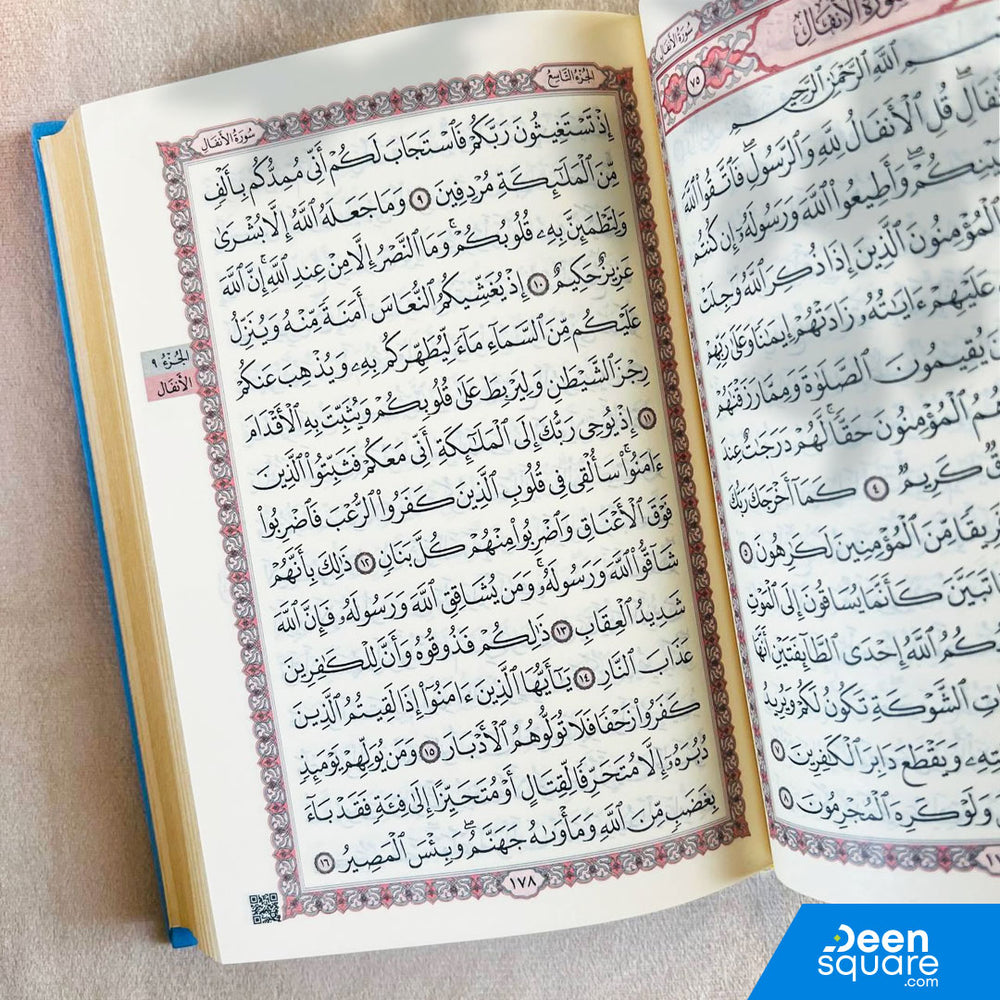 سُورَةُ الأَنفَالِ
سُورَةُ الأَنفَالِ
٧٥
ٱللَّهِ ٱلرَّحْمَٰنِ ٱلرَّحِيمِ
قُلِ ٱلْأَنفَالُ لِلَّهِ وَٱلرَّسُولِۖ فَٱتَّقُوا۟ ٱللَّهَ
وَأَطِيعُوا۟ ٱللَّهَ وَرَسُولَهُۥٓ إِن كُنتُم
ٱلْمُؤْمِنُونَ ٱلَّذِينَ إِذَا ذُكِرَ ٱللَّهُ وَجِلَتْ
عَلَيْهِمْ ءَايَٰتُهُۥ زَادَتْهُمْ إِيمَٰنًا وَعَلَىٰ رَبِّهِمْ
يُقِيمُونَ ٱلصَّلَوٰةَ وَمِمَّا رَزَقْنَٰهُمْ
هُمُ ٱلْمُؤْمِنُونَ حَقًّاۚ لَّهُمْ دَرَجَٰتٌ عِندَ
كَرِيمٌ ٤ كَمَآ أَخْرَجَكَ رَبُّكَ
مِّنَ ٱلْمُؤْمِنِينَ لَكَٰرِهُونَ ٥
كَأَنَّمَا يُسَاقُونَ إِلَى ٱلْمَوْتِ
ٱللَّهُ إِحْدَى ٱلطَّآئِفَتَيْنِ أَنَّهَا
ٱلشَّوْكَةِ تَكُونُ لَكُمْ وَيُرِيدُ
وَيَقْطَعَ دَابِرَ ٱلْكَٰفِرِينَ ٧
وَلَوْ كَرِهَ ٱلْمُجْرِمُونَ ٨
الجُزْءُ التَّاسِعُ
سُورَةُ الأَنفَالِ
إِذْ تَسْتَغِيثُونَ رَبَّكُمْ فَٱسْتَجَابَ لَكُمْ أَنِّى مُمِدُّكُم بِأَلْفٍ
مِّنَ ٱلْمَلَٰٓئِكَةِ مُرْدِفِينَ ٩ وَمَا جَعَلَهُ ٱللَّهُ إِلَّا بُشْرَىٰ
وَلِتَطْمَئِنَّ بِهِۦ قُلُوبُكُمْۚ وَمَا ٱلنَّصْرُ إِلَّا مِنْ عِندِ ٱللَّهِۚ إِنَّ ٱللَّهَ
عَزِيزٌ حَكِيمٌ ١٠ إِذْ يُغَشِّيكُمُ ٱلنُّعَاسَ أَمَنَةً مِّنْهُ وَيُنَزِّلُ
عَلَيْكُم مِّنَ ٱلسَّمَآءِ مَآءً لِّيُطَهِّرَكُم بِهِۦ وَيُذْهِبَ عَنكُمْ
رِجْزَ ٱلشَّيْطَٰنِ وَلِيَرْبِطَ عَلَىٰ قُلُوبِكُمْ وَيُثَبِّتَ بِهِ ٱلْأَقْدَامَ
١١ إِذْ يُوحِى رَبُّكَ إِلَى ٱلْمَلَٰٓئِكَةِ أَنِّى مَعَكُمْ فَثَبِّتُوا۟ ٱلَّذِينَ
ءَامَنُوا۟ۚ سَأُلْقِى فِى قُلُوبِ ٱلَّذِينَ كَفَرُوا۟ ٱلرُّعْبَ فَٱضْرِبُوا۟
فَوْقَ ٱلْأَعْنَاقِ وَٱضْرِبُوا۟ مِنْهُمْ كُلَّ بَنَانٍ ١٢ ذَٰلِكَ بِأَنَّهُمْ
شَآقُّوا۟ ٱللَّهَ وَرَسُولَهُۥۚ وَمَن يُشَاقِقِ ٱللَّهَ وَرَسُولَهُۥ فَإِنَّ ٱللَّهَ
شَدِيدُ ٱلْعِقَابِ ١٣ ذَٰلِكُمْ فَذُوقُوهُ وَأَنَّ لِلْكَٰفِرِينَ
عَذَابَ ٱلنَّارِ ١٤ يَٰٓأَيُّهَا ٱلَّذِينَ ءَامَنُوٓا۟ إِذَا لَقِيتُمُ ٱلَّذِينَ
كَفَرُوا۟ زَحْفًا فَلَا تُوَلُّوهُمُ ٱلْأَدْبَارَ ١٥ وَمَن يُوَلِّهِمْ يَوْمَئِذٍ
دُبُرَهُۥٓ إِلَّا مُتَحَرِّفًا لِّقِتَالٍ أَوْ مُتَحَيِّزًا إِلَىٰ فِئَةٍ فَقَدْ بَآءَ
بِغَضَبٍ مِّنَ ٱللَّهِ وَمَأْوَىٰهُ جَهَنَّمُۖ وَبِئْسَ ٱلْمَصِيرُ ١٦
١٧٨
الجُزْءُ ٩
الأَنفَال
Deen
square
.com